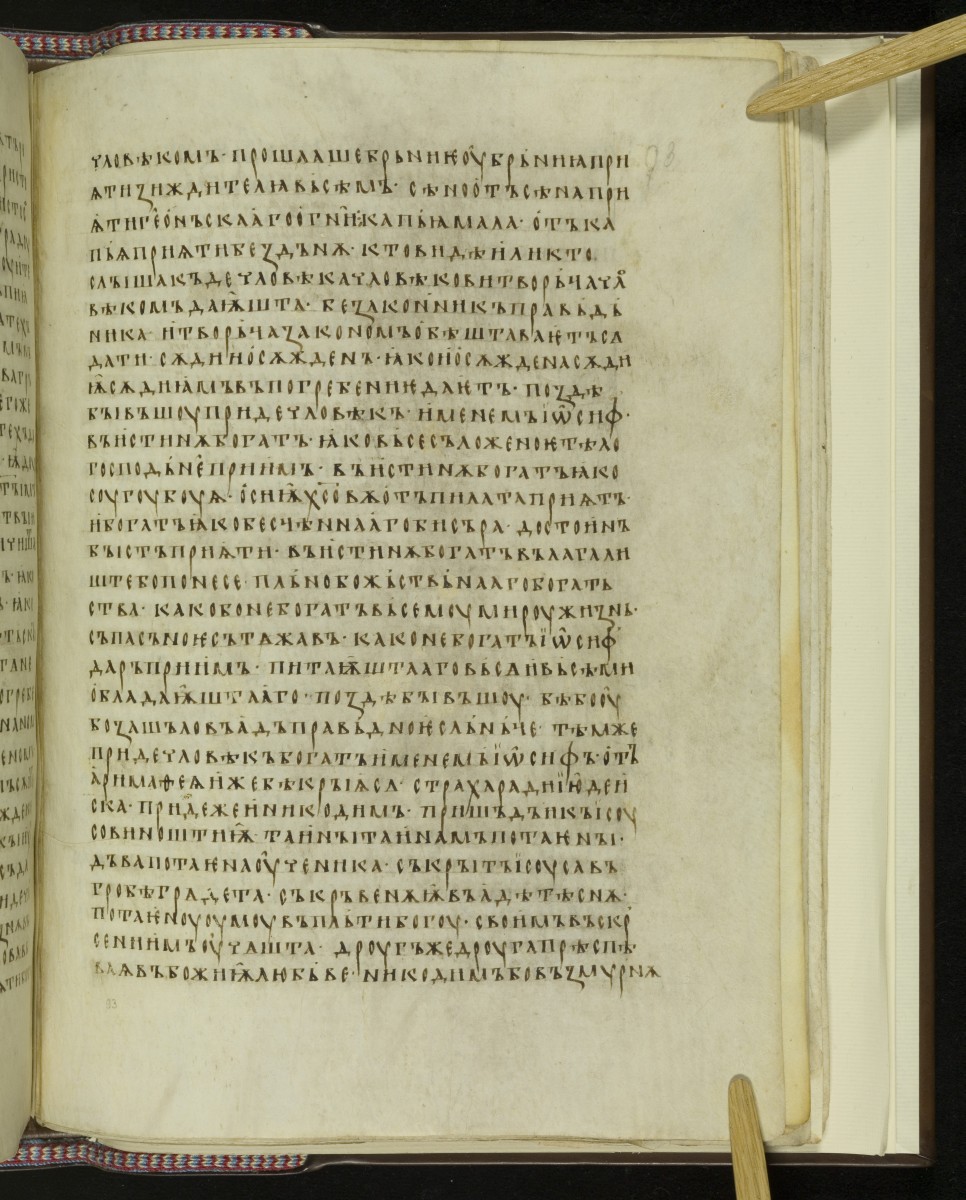 чловѣкомъ· прошаашебрьниѥоубрьниꙗпри
ѧтиꙁиждителꙗвьсѣмъ· сѣноотъсѣнапри
ѧтигеонъскаагоогнꙗ·капьꙗмала· отъка
пьѧприѧтибеꙁдънѫ· ктовидѣилικто
слꙑшакъдечловѣкачловѣковитворьчачло
вѣкомъдаѭшта· беꙁаконникъправьдь
ника· итворьчаꙁакономъобѣштаваѥтъсѧ
дати· сѫдииосѫжденъ· ꙗкоиосѫжденасѫди
ѩсѫдиꙗмъвъпогребениѥдаѥтъ· поꙁдѣ
бꙑвъшоупридечловѣкъ· именемьїѡсиф·
въистинѫбогатъ· ꙗковьсесъложеноѥтѣло
господьнеприимъ· въистинѫбогатъꙗко
соугоубоуѭ· осниѭхсовѫотъпилатаприѧтъ·
ибогатъꙗкобесчѣннаагобисьра· достоинъ
бꙑстъприѧти· въистинѫбогатъвълагали
штебопонесе· пльнобожьствьнаагобогать
ства· какобонебогатъвьсемоумироужиꙁнь·
съпасъноѥсътѧжавъ· каконебогатъїѡсиф
даръприимъ· питаѭштааговьсѧивьсѣми
обладаѭштааго· поꙁдѣбꙑвъшоу· бѣбооу
боꙁашьловъадъправьдьноѥсльньче· тѣмже
придечловѣкъбогатъименемьїѡсифъ·отъ
аримаѳеѧижебѣкрꙑѩсѧ· страхарадиїюдеи
ска· придежеиникодимъ· пришьдꙑикъїсоу
совиноштиѭ· таинꙑтаинамъпотаѥнꙑ·
дъвапотаѥнаоученика· съкрꙑтъїсоусавъ
гробѣгрѧдета· съкръвенѫѭвъадѣтѣснѫ·
потаѥноуоумоувъпльтибогоу· своимьвъскр
сениимьоучашта· дроугъжедроугапрѣспѣ
ваѧвъбожиѭлюбъве· никодимъбовъꙁмурнѫ
93
93